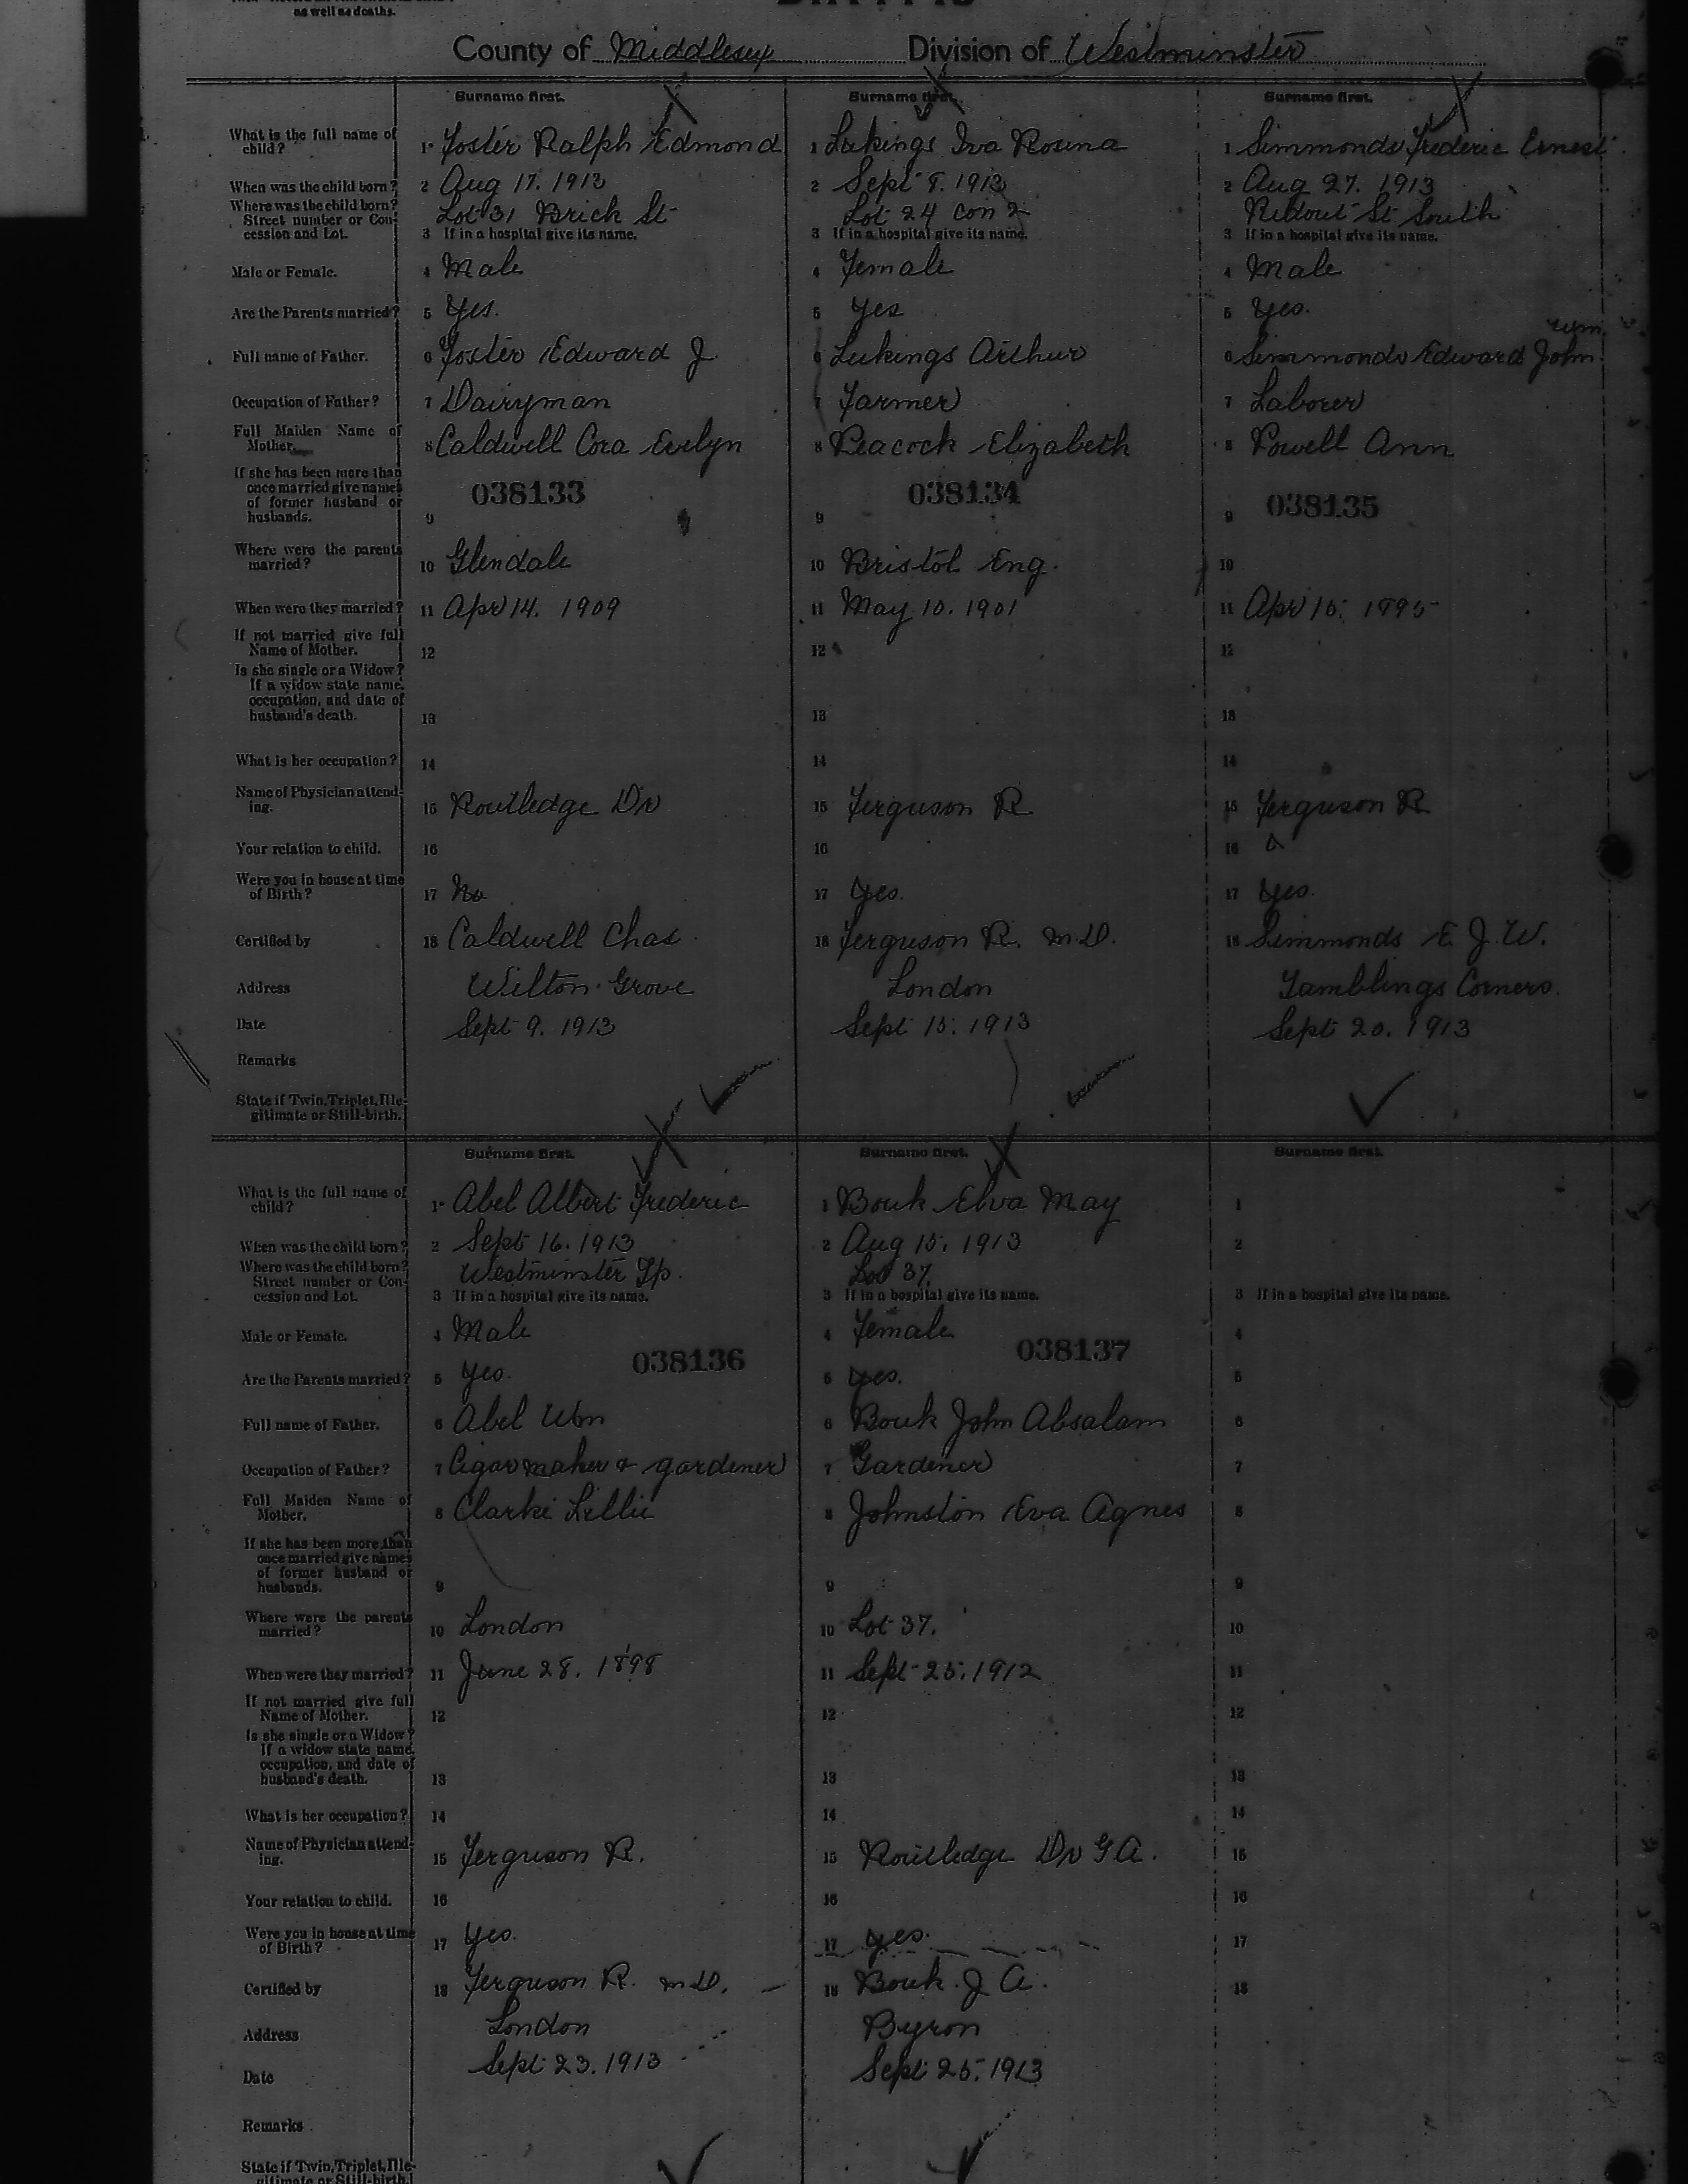 as well as deaths.
County of Middlesex Division of Westminster
Surname first. Surname first. Surname first.
What is the full name of child? 1 Foster Ralph Edmond 1 Lukings Iva Rosina 1 Simmonds Frederic Ernest
When was the child born? 2 Aug 17. 1913 2 Sept 8. 1913 2 Aug 27. 1913
Where was the child born? Lot 31 Brick St Lot 24 Con 2 Ridout St South
Street number or Concession and Lot. 3 If in a hospital give its name. 3 If in a hospital give its name. 3 If in a hospital give its name.
Male or Female. 4 Male 4 Female 4 Male
Are the Parents married? 5 Yes. 5 Yes 5 Yes.
Wm
Full name of Father. 6 Foster Edward J 6 Lukings Arthur 6 Simmonds Edward John
Occupation of Father? 7 Dairyman 7 Farmer 7 Laborer
Full Maiden Name of Mother. 8 Caldwell Cora Evelyn 8 Peacock Elizabeth 8 Powell Ann
If she has been more than once married give names of former husband or husbands. 9 038133 9 038134 9 038135
Where were the parents married? 10 Glendale 10 Bristol Eng. 10
When were they married? 11 Apr 14. 1909 11 May 10. 1901 11 Apr 15. 1895
If not married give full Name of Mother. 12 12 12
Is she single or a Widow? If a widow state name, occupation, and date of husband's death. 13 13 13
What is her occupation? 14 14 14
Name of Physician attending. 15 Routledge Dr 15 Ferguson R 15 Ferguson R
Your relation to child. 16 16 16
Were you in house at time of Birth? 17 No 17 Yes. 17 Yes.
Certified by 18 Caldwell Chas. 18 Ferguson R. M.D. 18 Simmonds E. J. W.
Address Wilton Grove London Tamblings Corners.
Date Sept 9. 1913 Sept 15. 1913 Sept 20. 1913
Remarks
State if Twin, Triplet, Illegitimate or Still-birth.
Surname first. Surname first. Surname first.
What is the full name of child? 1 Abel Albert Frederic 1 Bouk Elva May 1
When was the child born? 2 Sept 16. 1913 2 Aug 15. 1913 2
Where was the child born? Westminster Tp. Lot 37.
Street number or Concession and Lot. 3 If in a hospital give its name. 3 If in a hospital give its name. 3 If in a hospital give its name.
Male or Female. 4 Male 4 Female 4
038136 038137
Are the Parents married? 5 Yes. 5 Yes. 5
Full name of Father. 6 Abel Wm 6 Bouk John Absalam 6
Occupation of Father? 7 Cigar maker & gardener 7 Gardener 7
Full Maiden Name of Mother. 8 Clarke Lillie 8 Johnston Eva Agnes 8
If she has been more than once married give names of former husband or husbands. 9 9 9
Where were the parents married? 10 London 10 Lot 37. 10
When were they married? 11 June 28. 1898 11 Sept 25. 1912 11
If not married give full Name of Mother. 12 12 12
Is she single or a Widow? If a widow state name, occupation, and date of husband's death. 13 13 13
What is her occupation? 14 14 14
Name of Physician attending. 15 Ferguson R. 15 Routledge Dr G A. 15
Your relation to child. 16 16 16
Were you in house at time of Birth? 17 Yes. 17 Yes. 17
Certified by 18 Ferguson R. M.D. 18 Bouk. J A. 18
Address London Byron
Date Sept 23. 1913 Sept 25. 1913
Remarks
State if Twin, Triplet, Illegitimate or Still-birth.